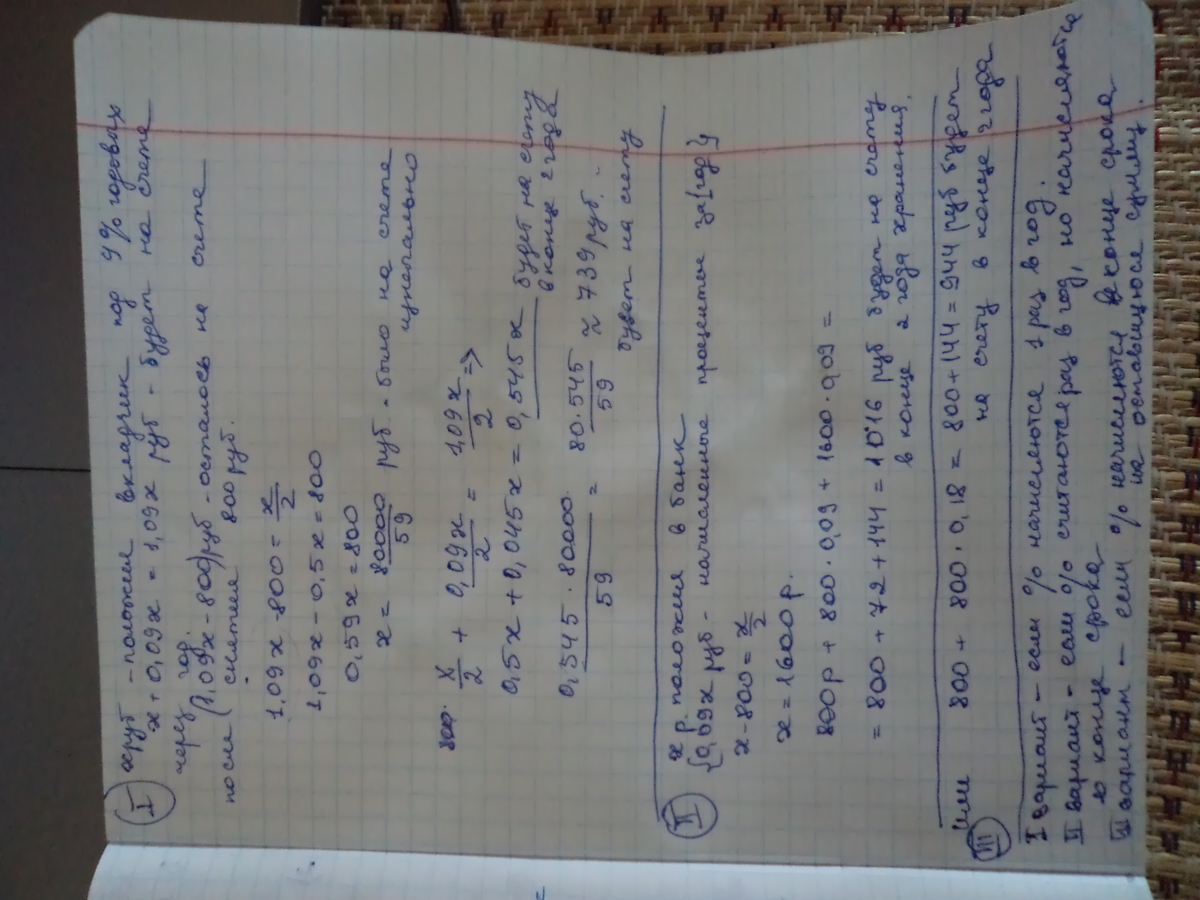 I х руб - положил вкладчик под 9% годовых
х + 0,09х = 1,09х руб - будет на счете
через год.
после (1,09х - 800) руб - осталось на счете
снятия 800 руб.
1,09х - 800 = х/2
1,09х - 0,5х = 800
0,59х = 800
х = 80000/59 руб - было на счете
изначально
х/2 + 0,09х/2 = 1,09х/2 =>
0,5х + 0,045х = 0,545х будет на счету
в конце 2 года
0,545 · 80000/59 = 80·545/59 ≈ 739 руб. -
будет на счету
II х р. положил в банк
{0,09х руб - начисленные проценты за 1 год}
х - 800 = х/2
х = 1600 р.
800р + 800·0,09 + 1600·0,09 =
= 800 + 72 + 144 = 1016 руб будет на счету
в конце 2 года хранения.
или
III 800 + 800·0,18 = 800 + 144 = 944 руб будет
на счету в конце 2 года
I вариант - если % начисляются 1 раз в год.
II вариант - если % считаются раз в год, но начисляются
в конце срока
III вариант - если % начисляются в конце срока
на оставшуюся сумму.